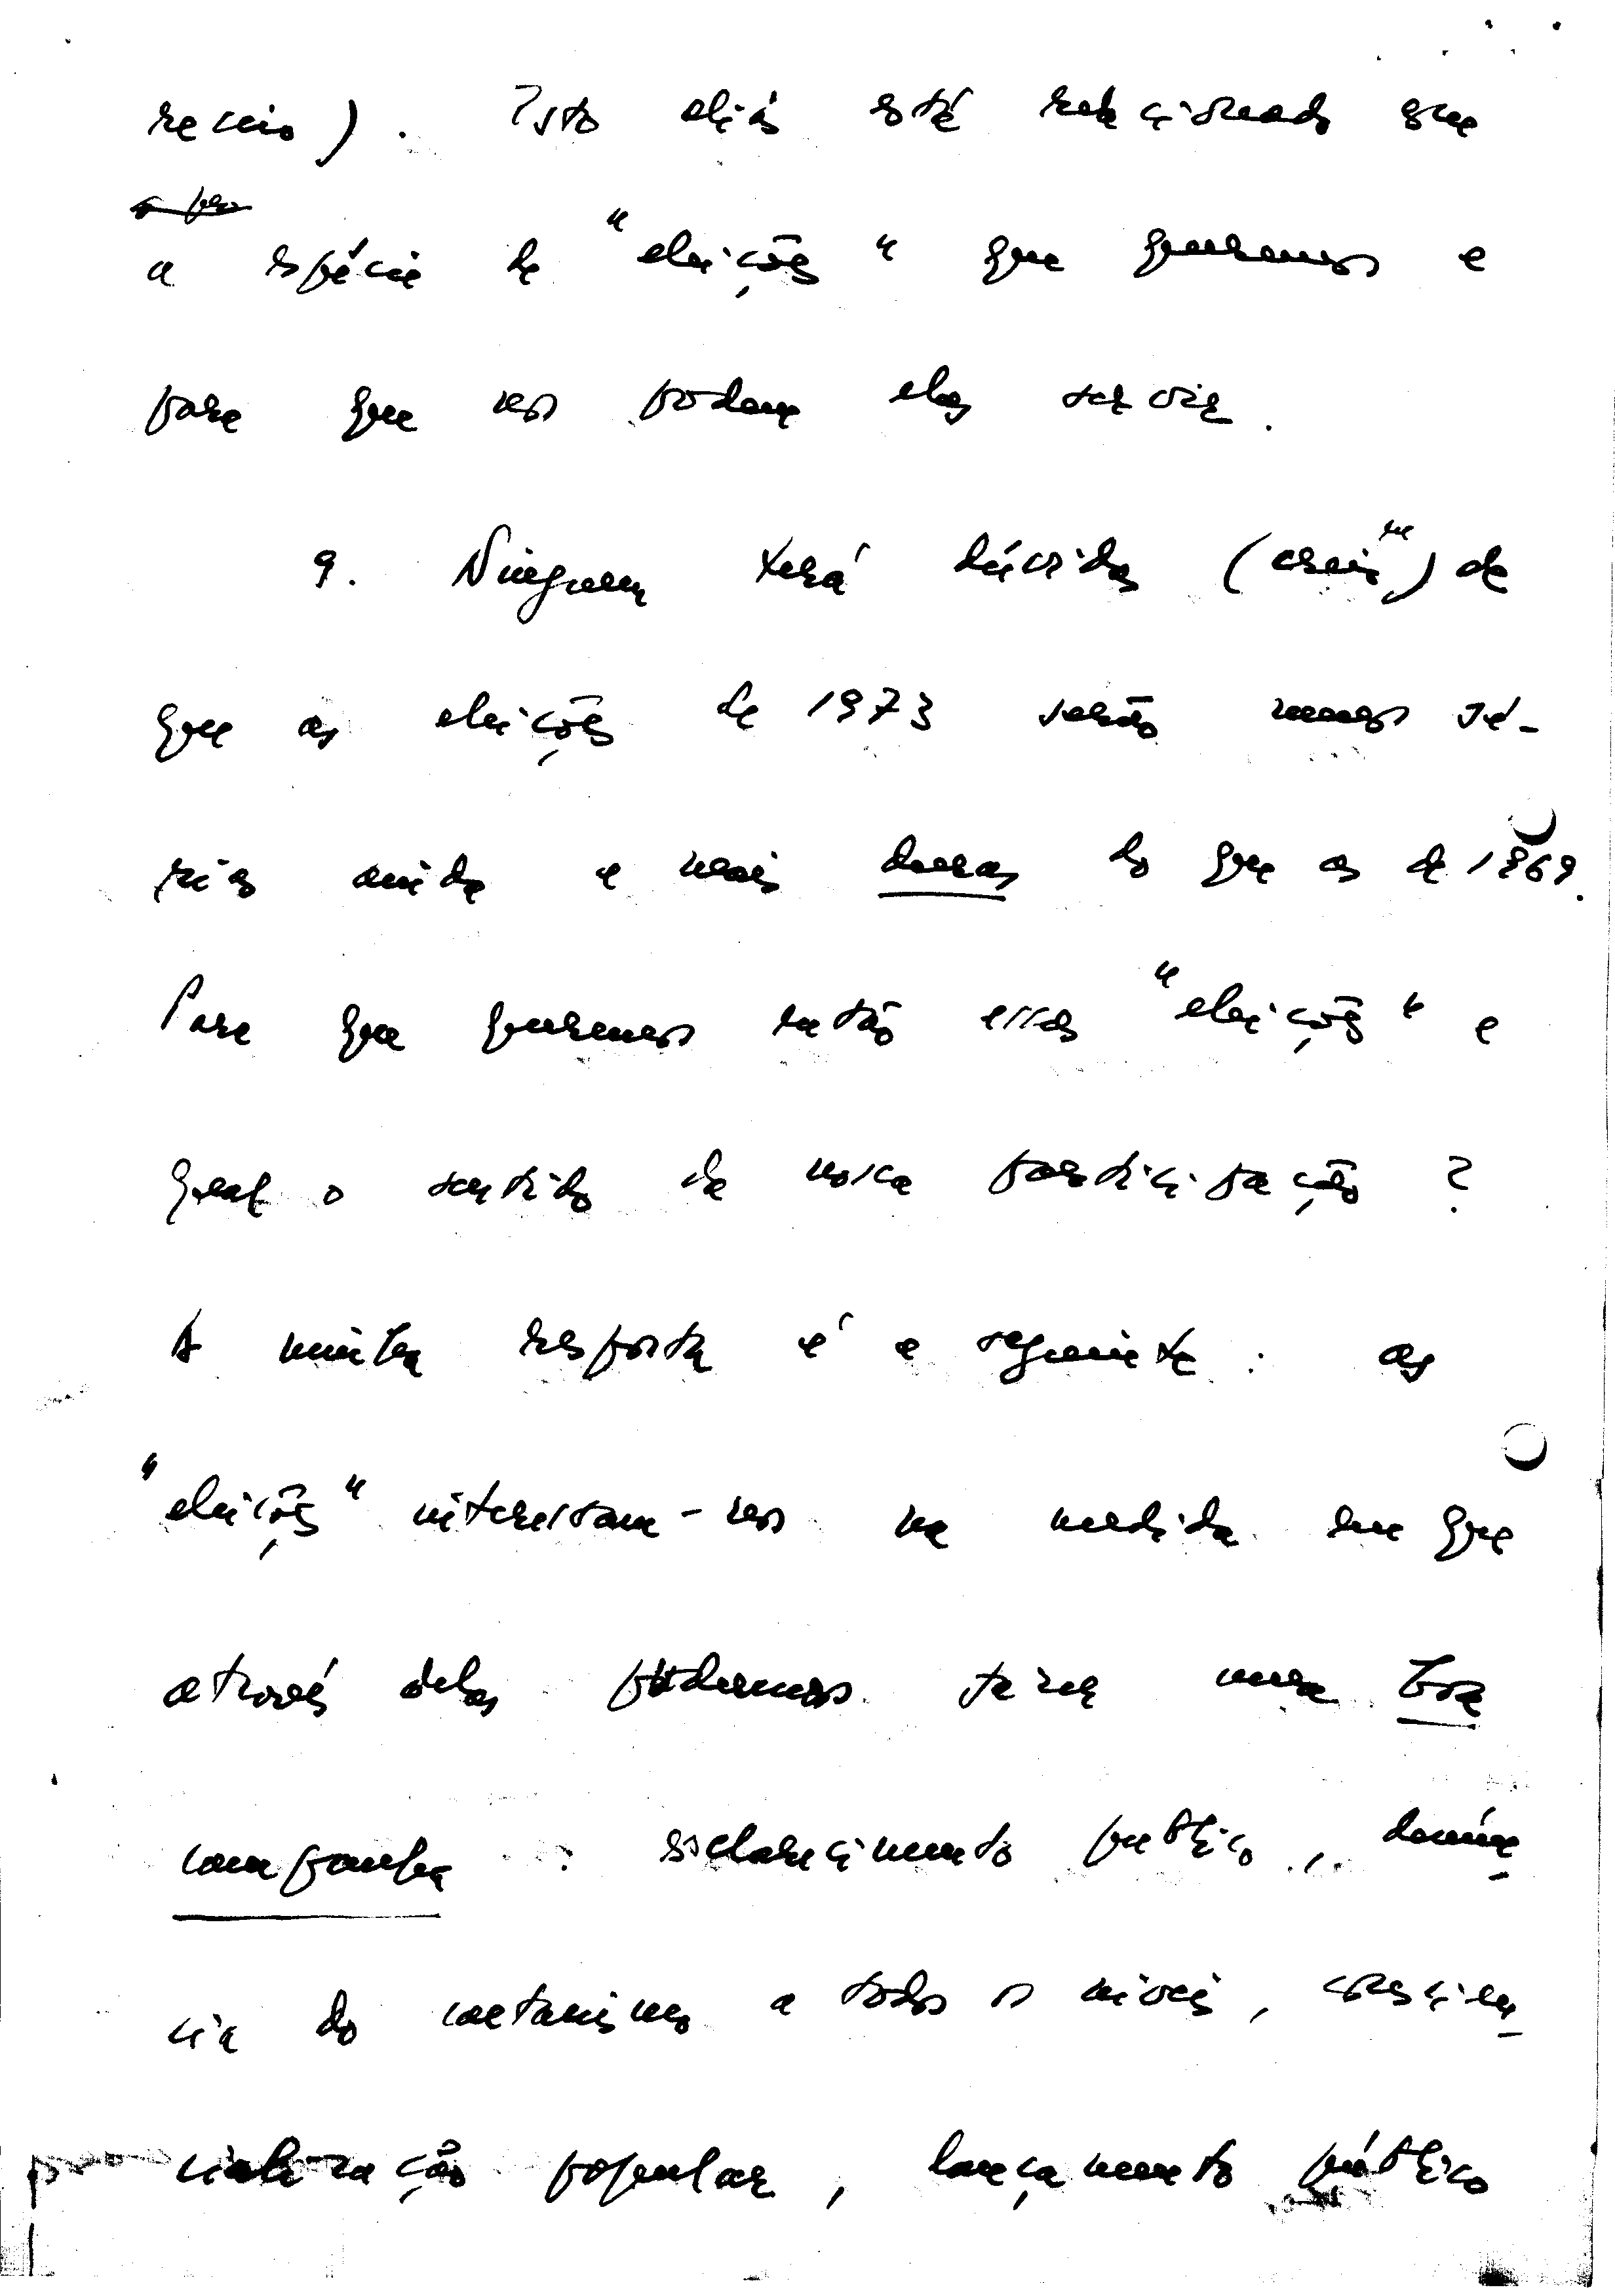 receio). Isto aliás está relacionado com
a espécie de "eleições" que queremos e
para que nos podem elas servir.
9. Ninguem terá dúvidas (creio eu) de
que as eleições de 1973 serão menos sé-
rias ainda e mais duras do que as de 1969.
Para que queremos então essas "eleições" e
qual o sentido da nossa participação?
A minha resposta é a seguinte: as
"eleições" interessam-nos na medida em que
através delas pudermos fazer uma boa
campanha: esclarecimento publico, denún-
cia do caetanismo a todos os níveis, consciên-
cialização popular, lançamento público